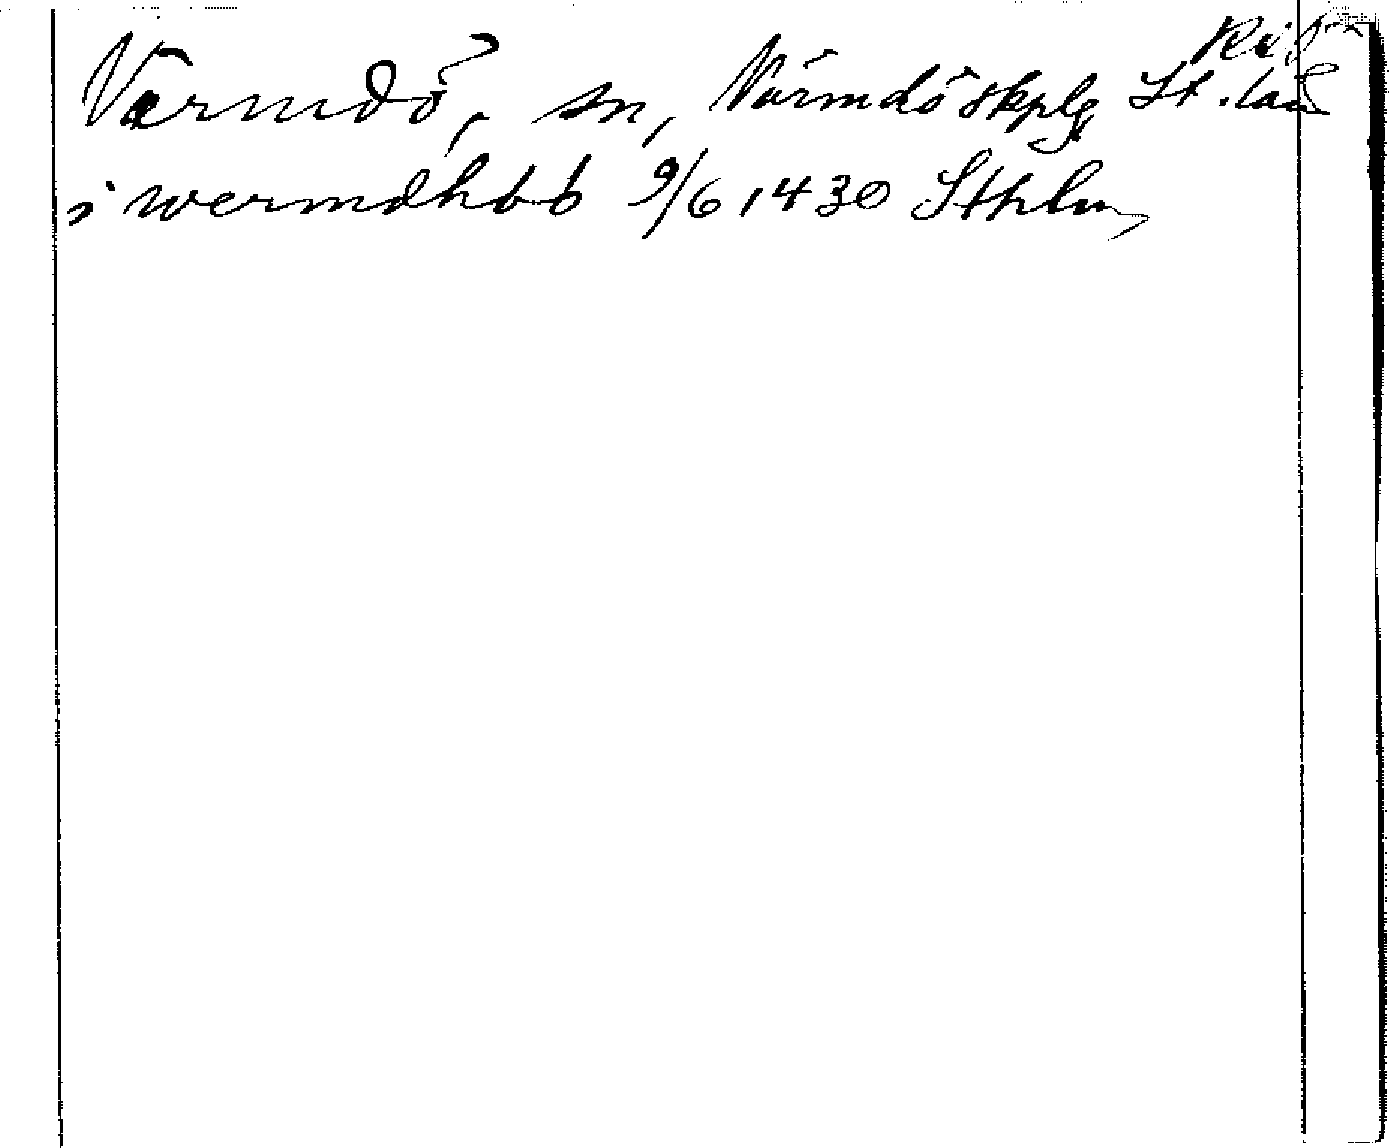 Värmdö, sn, Värmdö skplg St. län
i wermdhöö 9/6 1430 Sthlm